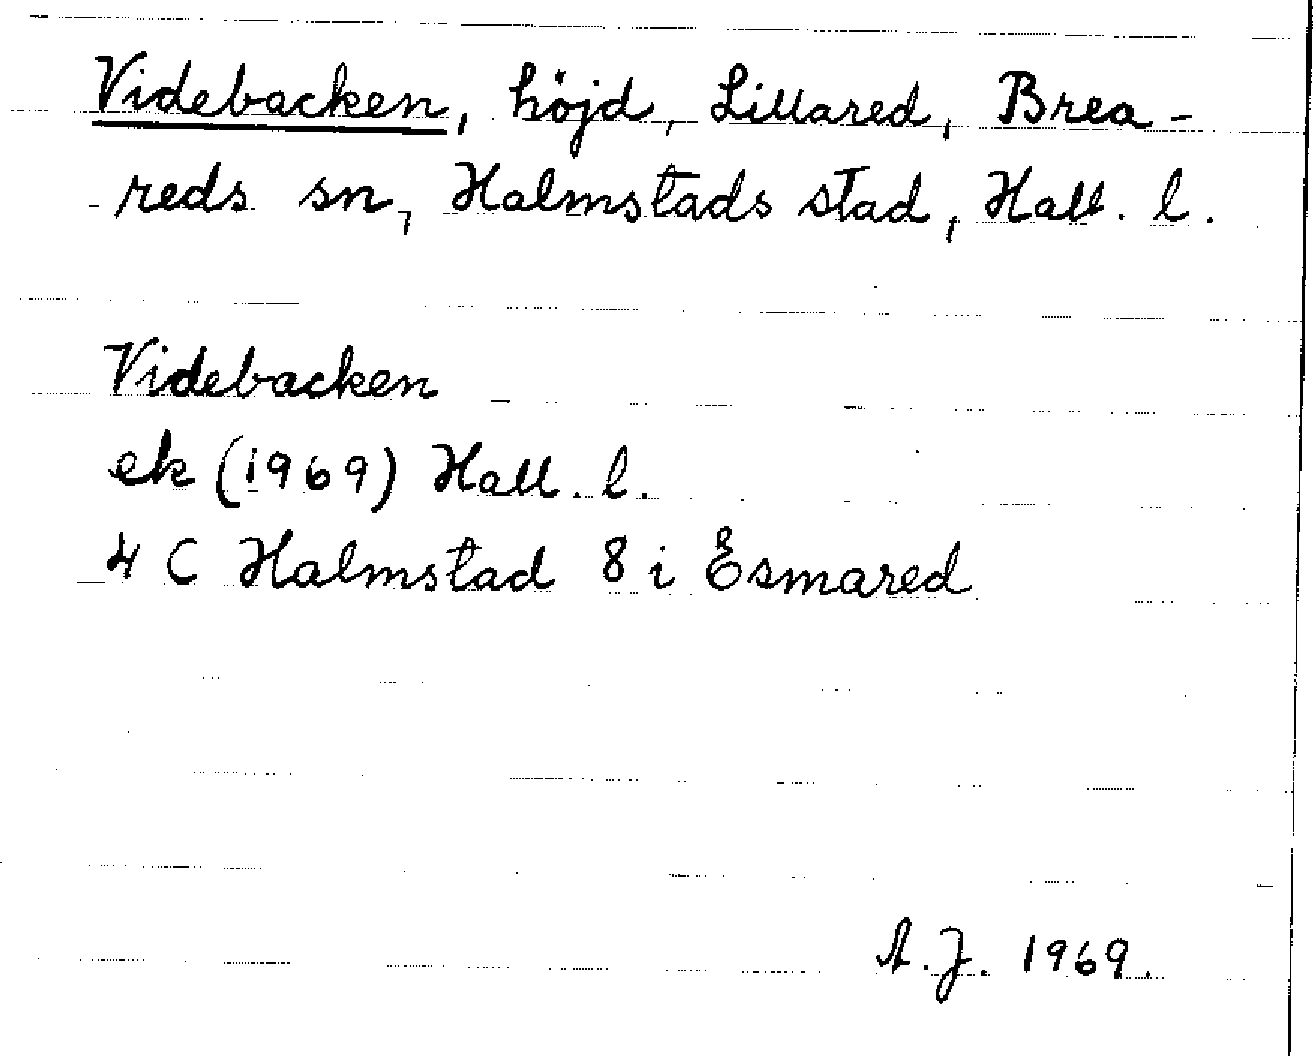 Videbacken, höjd, Lillared, Brea-
reds sn, Halmstads stad, Hall. l.
Videbacken
ek (1969) Hall. l.
4 C Halmstad 8 i Esmared
A.J. 1969.